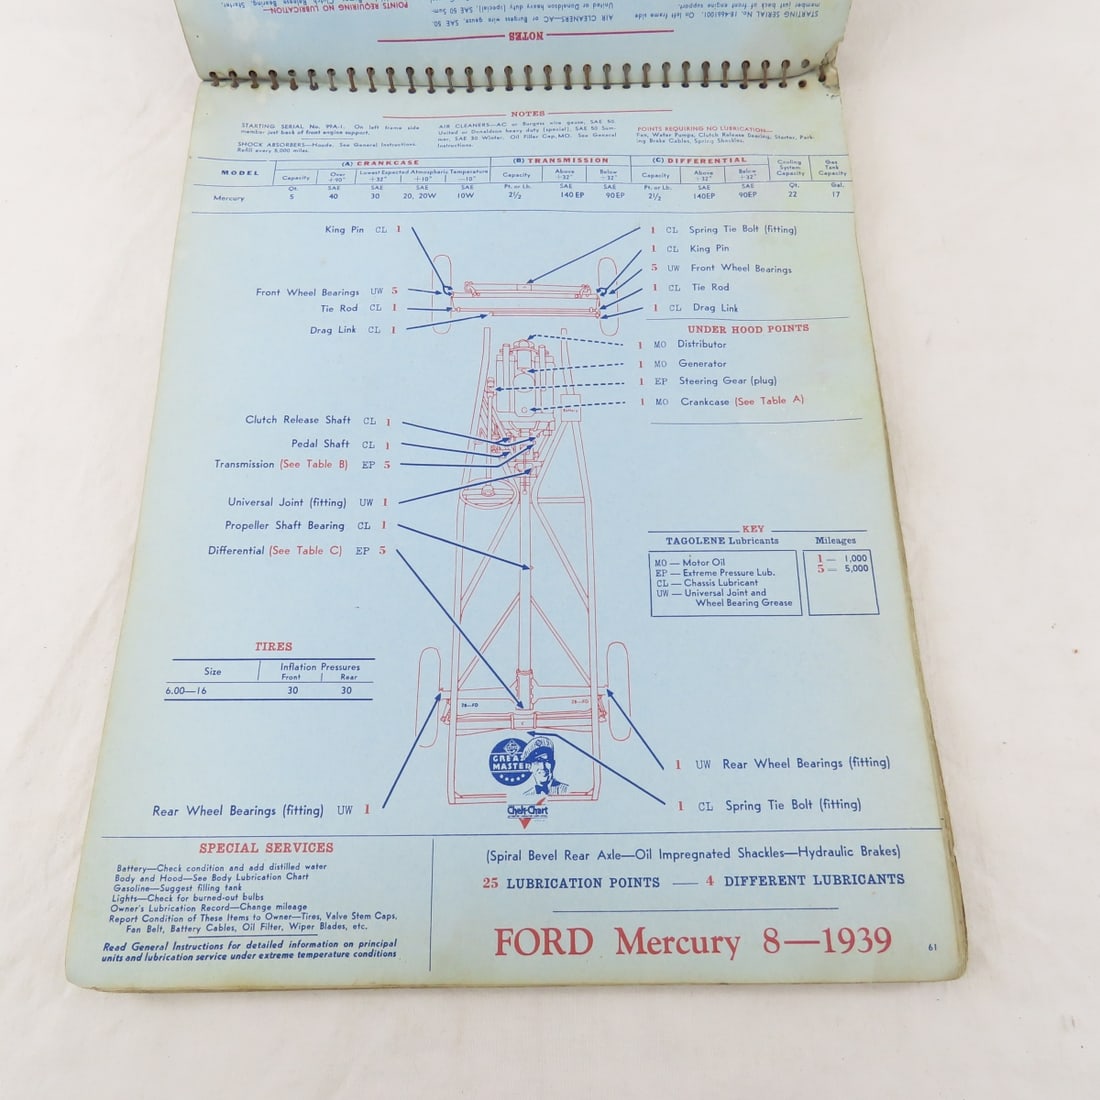 NOTES
STARTING SERIAL No. 99A-1. On left frame side
member just back of front engine support.
SHOCK ABSORBERS—Houde. See General Instructions.
Refill every 5,000 miles.
AIR CLEANERS—AC or Burgess wire gauze, SAE 50.
United or Donaldson heavy duty (special), SAE 50 Sum-
mer, SAE 30 Winter. Oil Filler Cap, MO. See General
Instructions.
POINTS REQUIRING NO LUBRICATION—
Fan, Water Pumps, Clutch Release Bearing, Starter, Park-
ing Brake Cables, Spring Shackles.
MODEL
(A) CRANKCASE
(B) TRANSMISSION
(C) DIFFERENTIAL
Cooling System Capacity
Gas Tank Capacity
Capacity Over +90° Lowest Expected Atmospheric Temperature +32° +10° —10°
Capacity Above +32° Below +32°
Capacity Above +32° Below +32°
Qt. SAE SAE SAE SAE Pt. or Lb. SAE SAE Pt. or Lb. SAE SAE Qt. Gal.
Mercury 5 40 30 20, 20W 10W 2½ 140 EP 90 EP 2½ 140EP 90EP 22 17
King Pin CL 1
Front Wheel Bearings UW 5
Tie Rod CL 1
Drag Link CL 1
1 CL Spring Tie Bolt (fitting)
1 CL King Pin
5 UW Front Wheel Bearings
1 CL Tie Rod
1 CL Drag Link
UNDER HOOD POINTS
1 MO Distributor
1 MO Generator
1 EP Steering Gear (plug)
1 MO Crankcase (See Table A)
Battery
Clutch Release Shaft CL 1
Pedal Shaft CL 1
Transmission (See Table B) EP 5
Universal Joint (fitting) UW 1
Propeller Shaft Bearing CL 1
Differential (See Table C) EP 5
KEY
TAGOLENE Lubricants Mileages
MO — Motor Oil
EP — Extreme Pressure Lub.
CL — Chassis Lubricant
UW — Universal Joint and
Wheel Bearing Grease
1 — 1,000
5 — 5,000
TIRES
Size Inflation Pressures
Front Rear
6.00—16 30 30
28—FD 28—FD
GREASE
MASTER
Chek-Chart
1 UW Rear Wheel Bearings (fitting)
Rear Wheel Bearings (fitting) UW 1
1 CL Spring Tie Bolt (fitting)
SPECIAL SERVICES
Battery—Check condition and add distilled water
Body and Hood—See Body Lubrication Chart
Gasoline—Suggest filling tank
Lights—Check for burned-out bulbs
Owner's Lubrication Record—Change mileage
Report Condition of These Items to Owner—Tires, Valve Stem Caps,
Fan Belt, Battery Cables, Oil Filter, Wiper Blades, etc.
Read General Instructions for detailed information on principal
units and lubrication service under extreme temperature conditions
(Spiral Bevel Rear Axle—Oil Impregnated Shackles—Hydraulic Brakes)
25 LUBRICATION POINTS — 4 DIFFERENT LUBRICANTS
FORD Mercury 8—1939
61
NOTES
STARTING SERIAL No. 18-4661001. On left frame side
member just back of front engine support.
AIR CLEANERS—AC or Burgess wire gauze, SAE 50.
United or Donaldson heavy duty (special), SAE 50 Sum-
POINTS REQUIRING NO LUBRICATION—